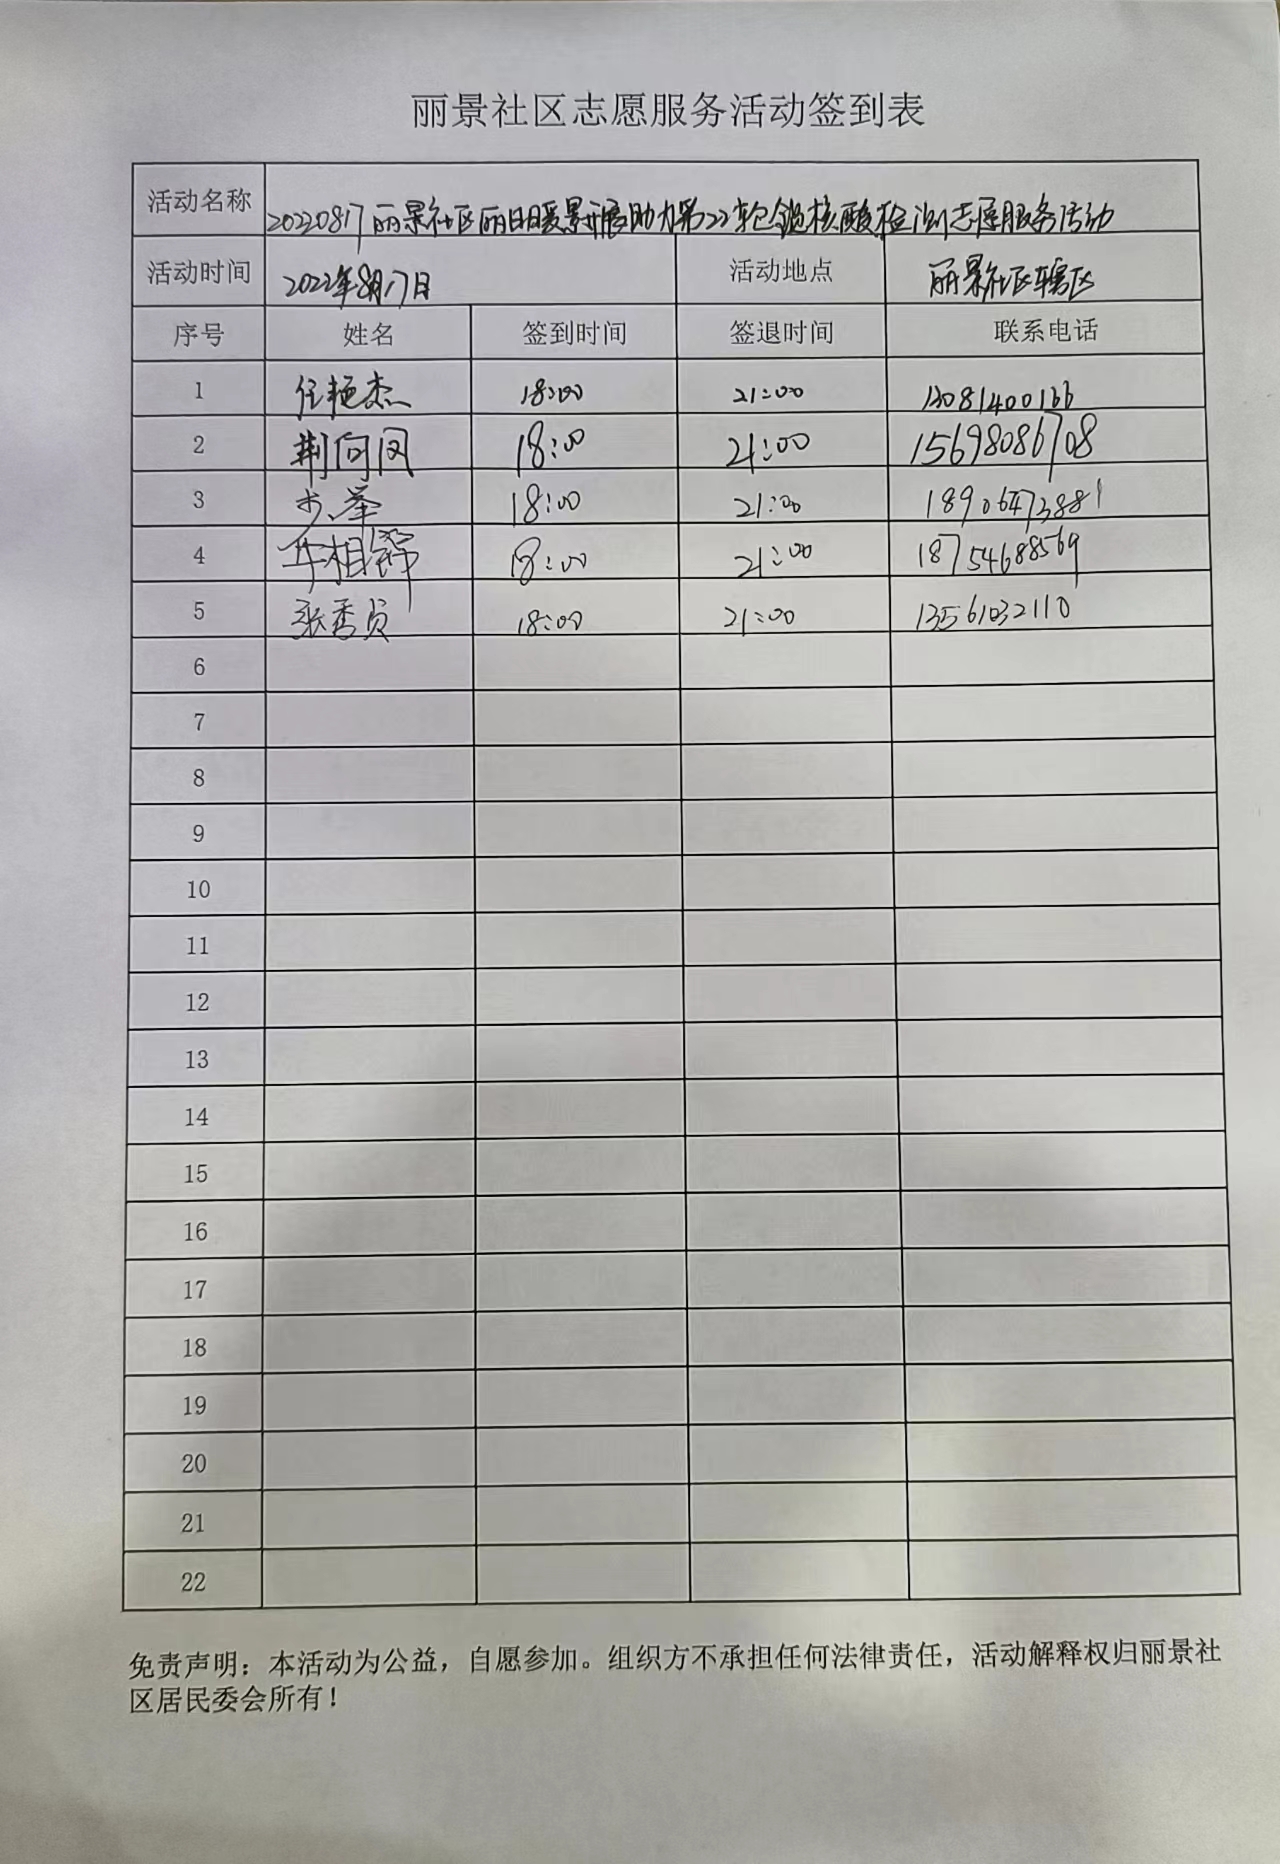 丽景社区志愿服务活动签到表
活动名称 20220817丽景社区丽日暖景开展助力第22轮全镇核酸检测志愿服务活动
活动时间 2022年8月17日 活动地点 丽景社区辖区
序号 姓名 签到时间 签退时间 联系电话
1 任艳杰 18:00 21:00 13081400166
2 荆向凤 18:00 21:00 15698086708
3 18:00 21:00 18906473881
4 18:00 21:00 18754688569
5 张秀贞 18:00 21:00 13561032110
6
7
8
9
10
11
12
13
14
15
16
17
18
19
20
21
22
免责声明：本活动为公益，自愿参加。组织方不承担任何法律责任，活动解释权归丽景社
区居民委会所有！